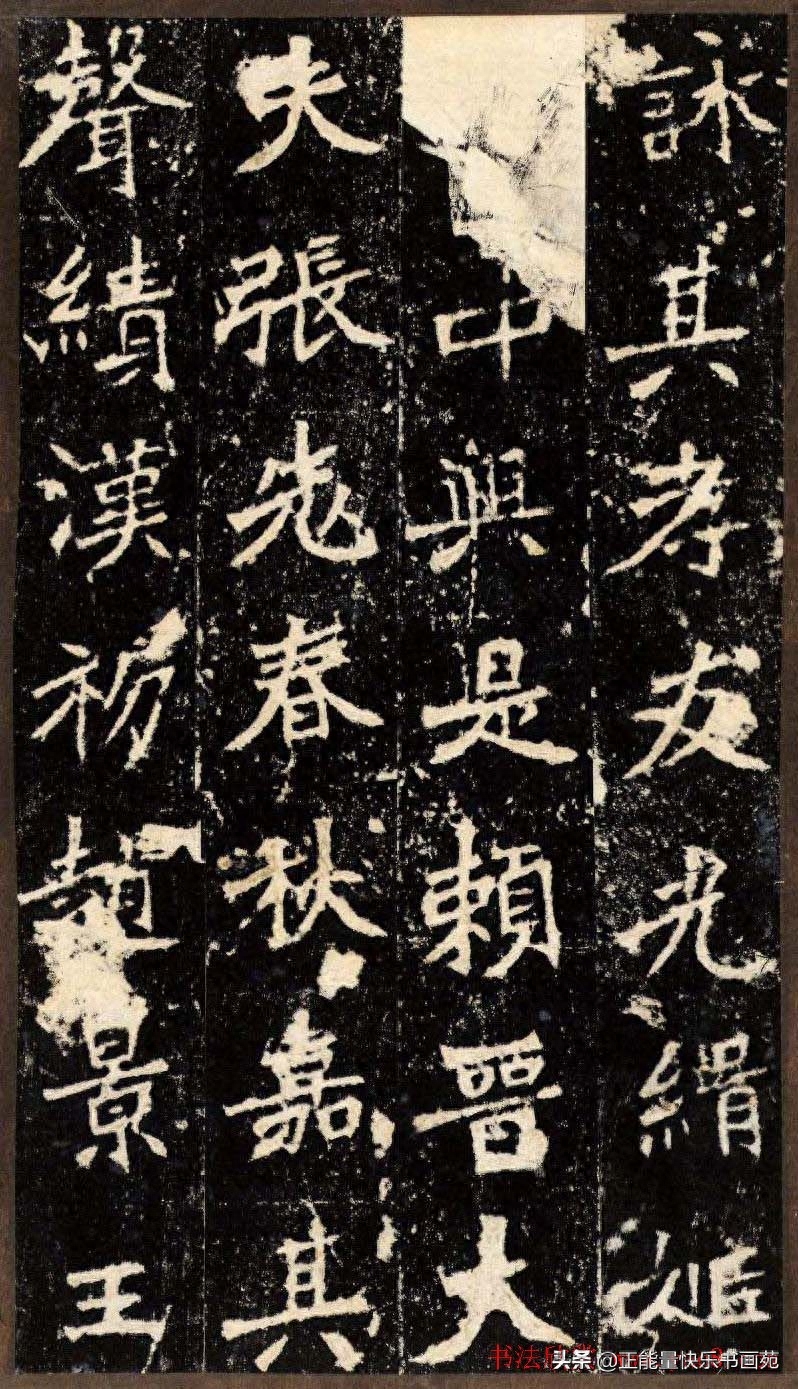 詠其孝友光緝姬
中興是賴晉大
夫張老春秋嘉其
聲績漢初趙景王
头条 @正能量快乐书画苑
书法